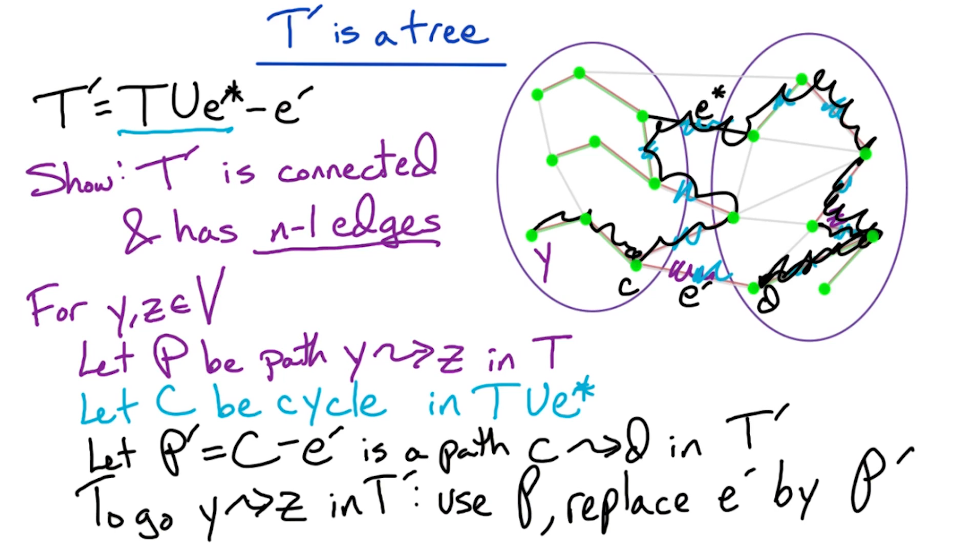 T′ is a tree
T′ = T ∪ e* - e′
Show: T′ is connected
& has n-1 edges
For y, z ∈ V
Let P be path y ⇝ z in T
Let C be cycle in T ∪ e*
Let P′ = C - e′ is a path c ⇝ d in T′
To go y ⇝ z in T′: use P, replace e′ by P′
e*
z
y
c
e′
d